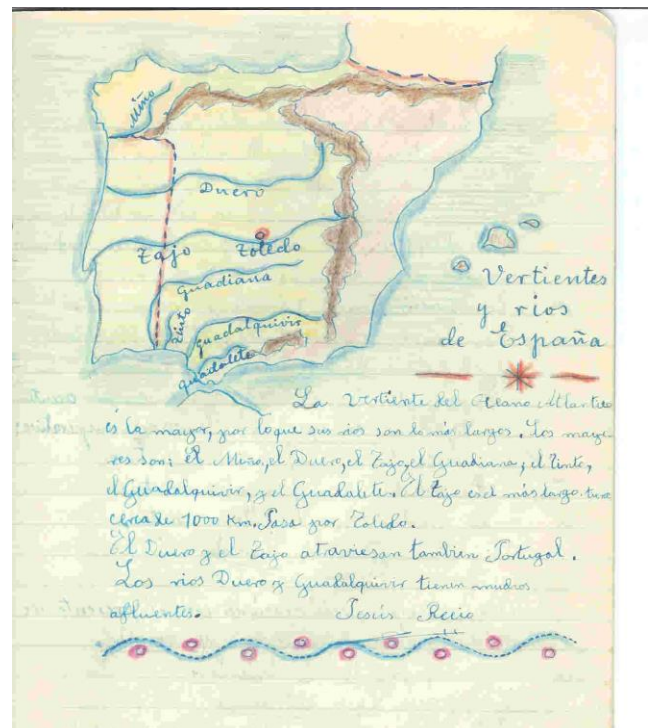 Miño
Duero
Tajo Toledo
Guadiana
Tinto
Guadalquivir
Guadalete
Vertientes
y rios
de España
La Vertiente del Oceano Atlantico
es la mayor, por lo que sus rios son lo más largos. Los mayo-
res son: el Miño, el Duero, el Tajo, el Guadiana, el Tinto,
el Guadalquivir, y el Guadalete. El Tajo es el más largo. tiene
cerca de 1000 Km. Pasa por Toledo.
El Duero y el Tajo atraviesan tambien Portugal.
Los rios Duero y Guadalquivir tienen muchos
afluentes. Jesús Recio